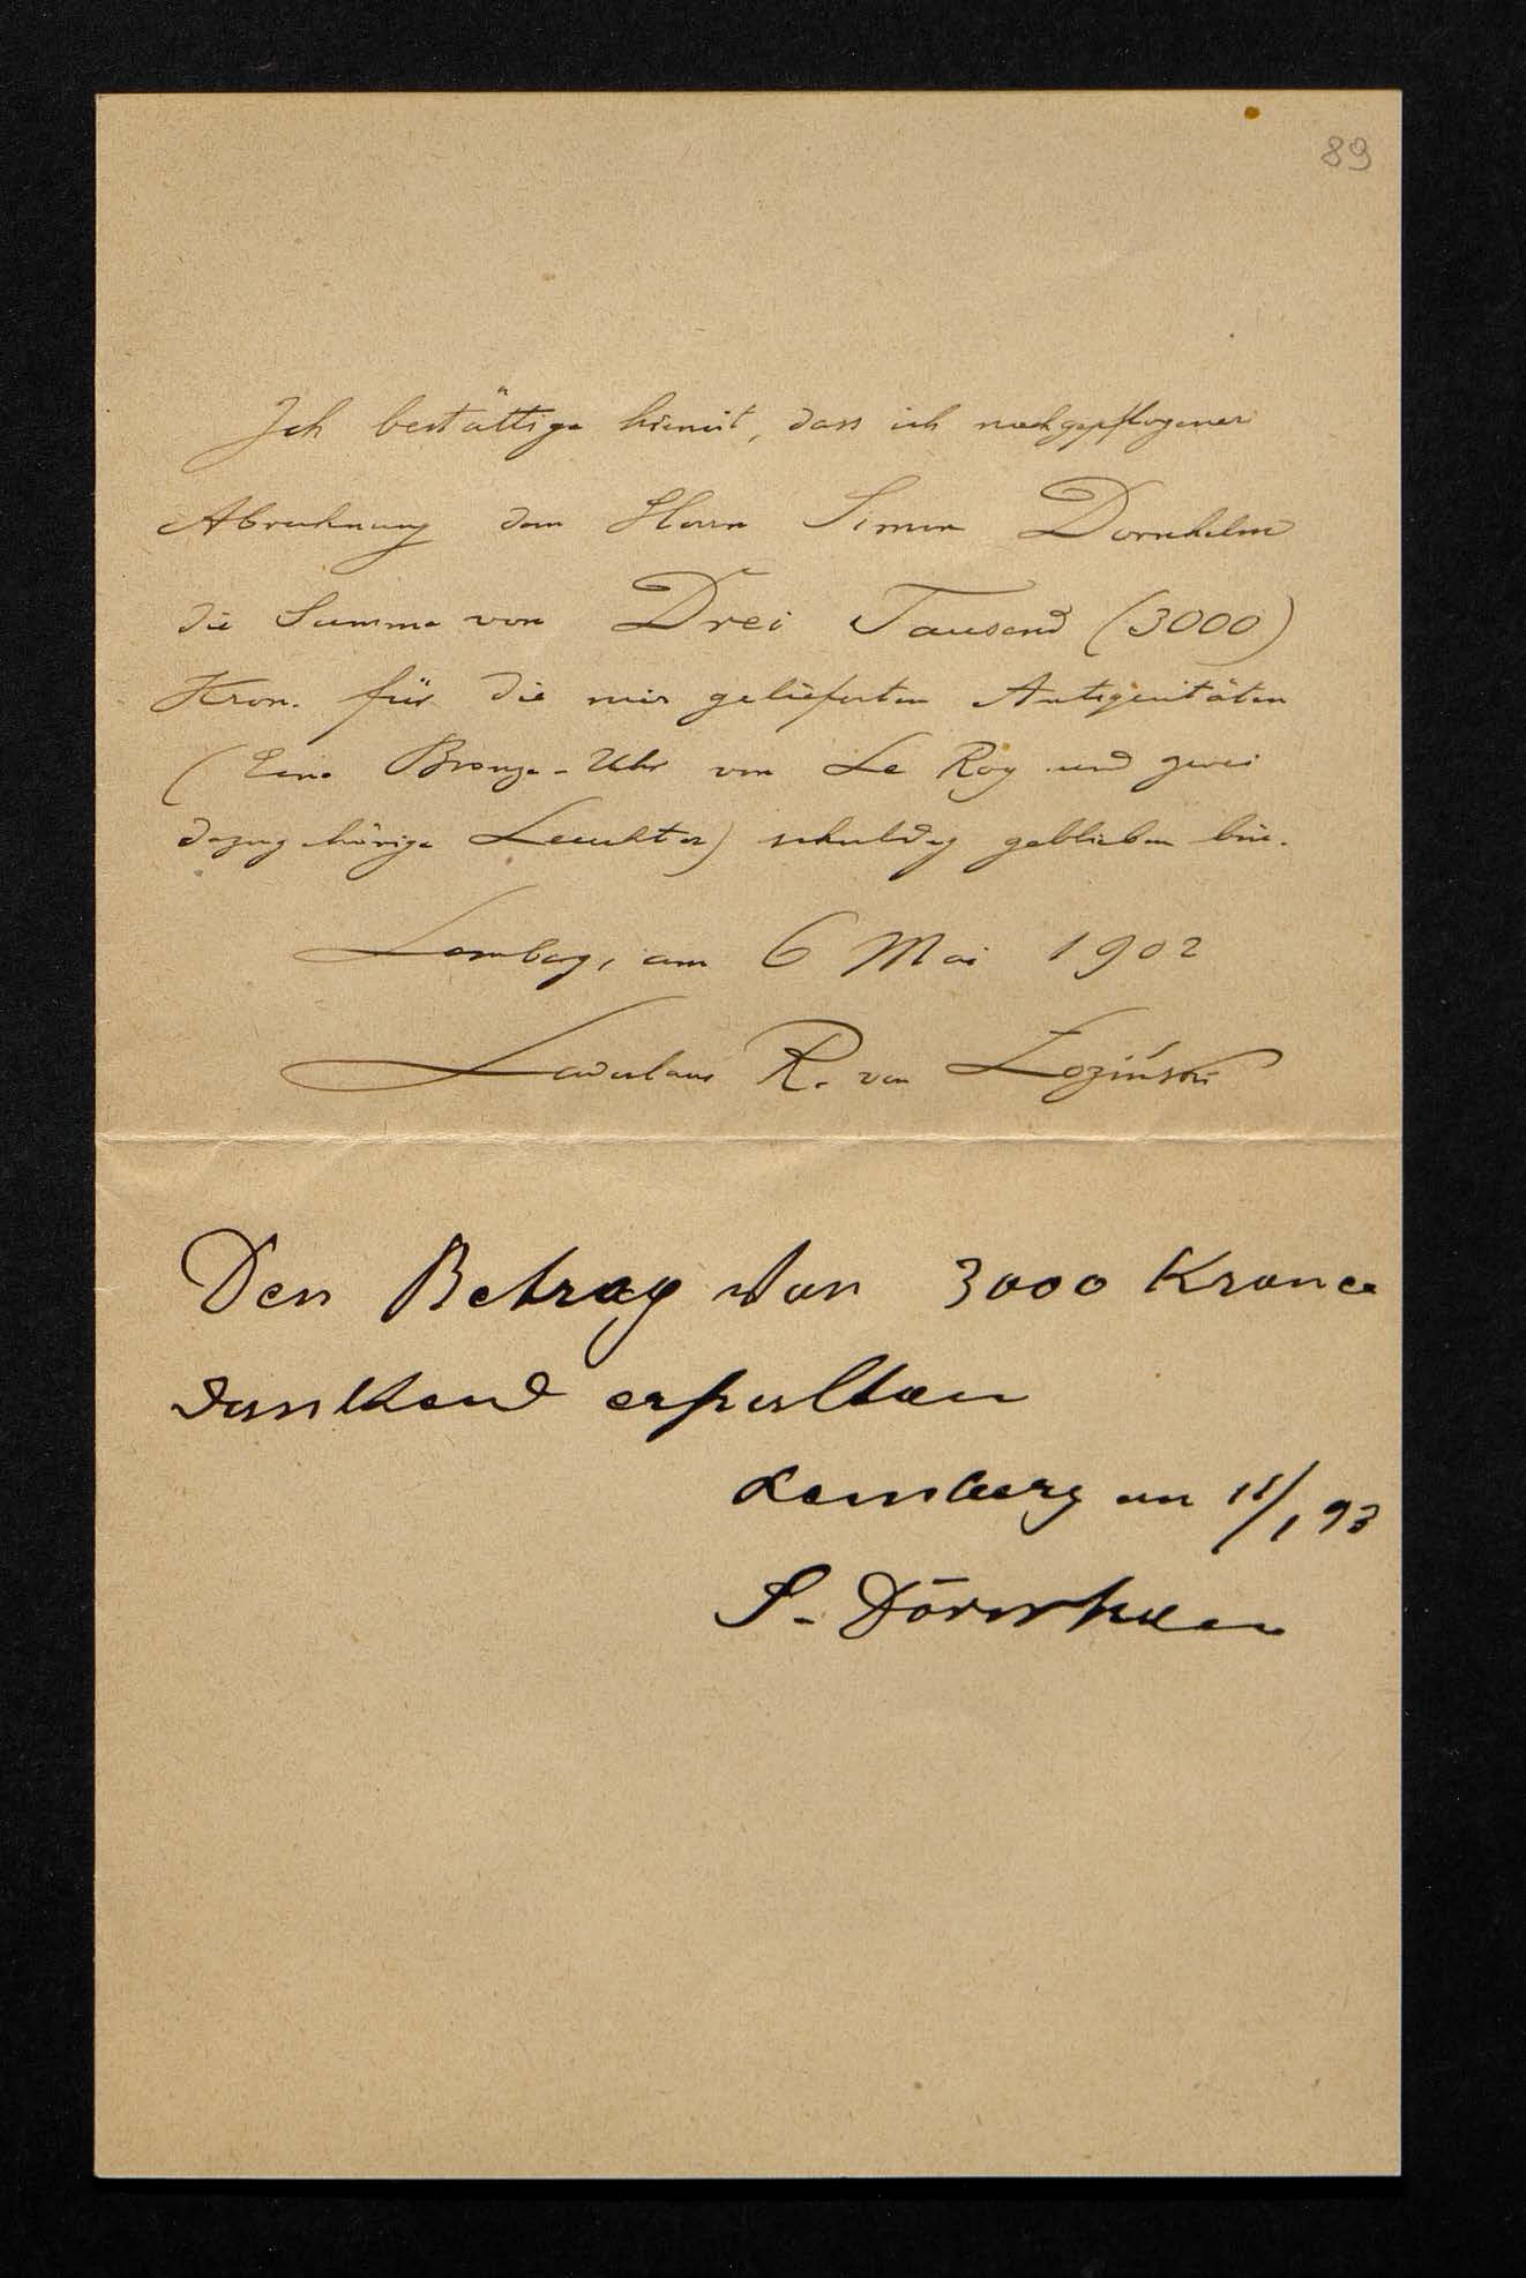 89
Ich bestättige hiemit, dass ich nachgepflogener
Abrechnung dem Herrn Simon Dornhelm
die Summe von Drei Tausend (3000)
Kron. für die mir gelieferten Antiquitäten
(Eine Bronze-Uhr von Le Roy und zwei
dazugehörige Leuchter) schuldig geblieben bin.
Lemberg, am 6 Mai 1902
Ladislaus R. von Łoziński
Den Betrag von 3000 Kronen
dankend erhalten
Lemberg am
S.